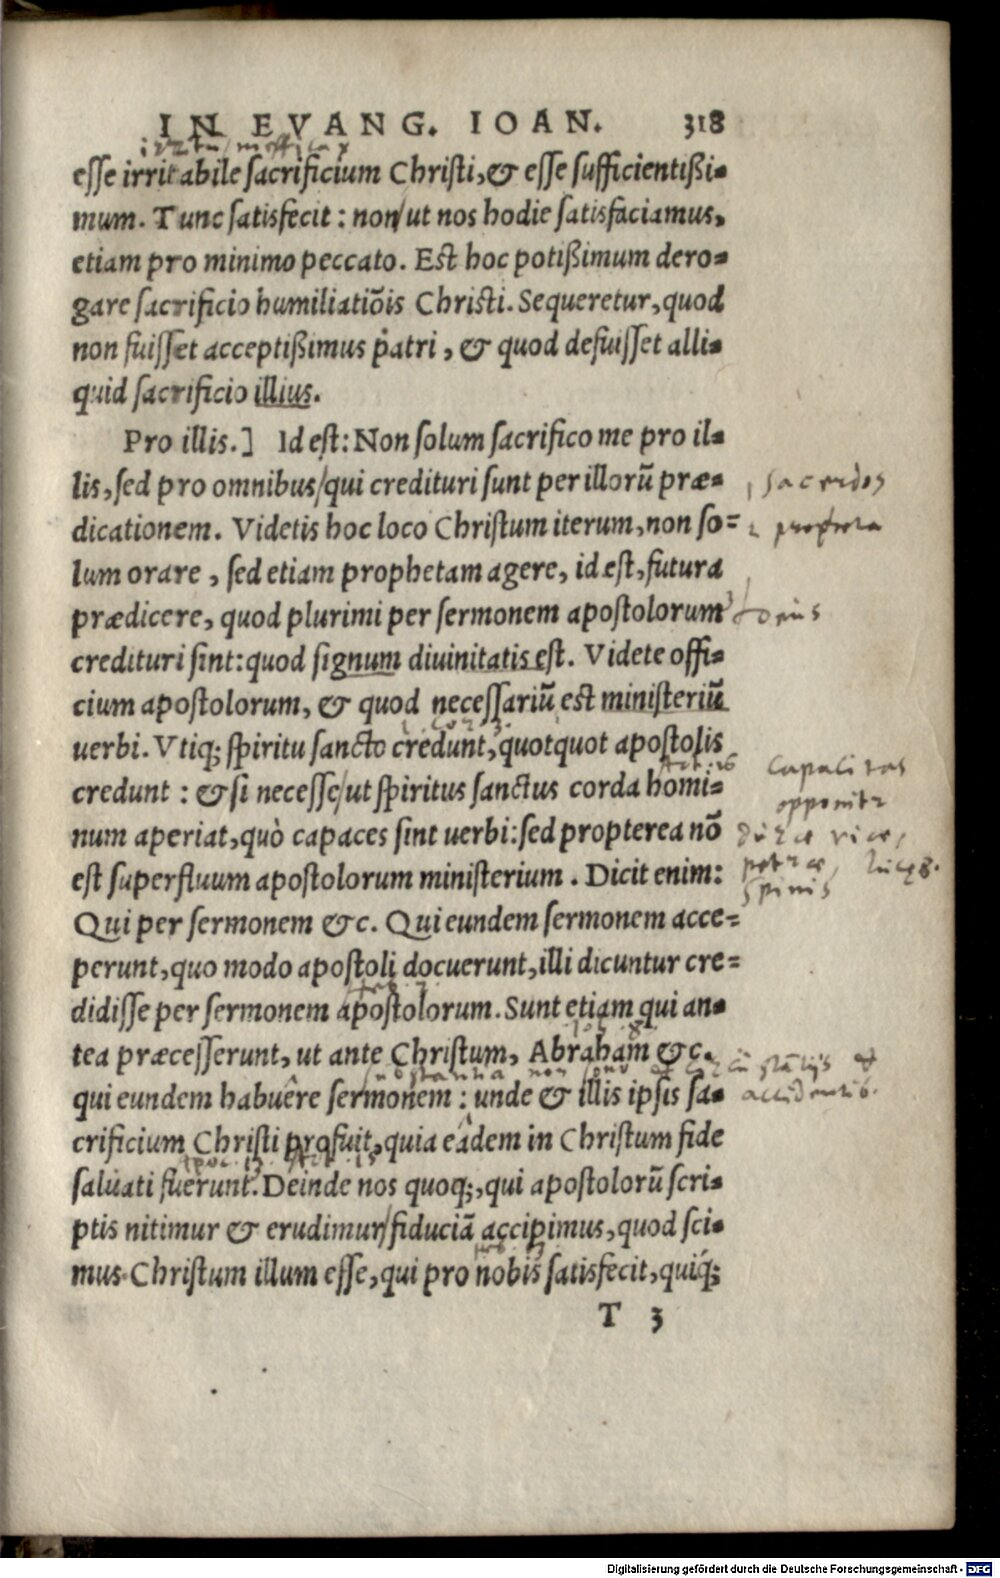 IN EVANG. IOAN. 318
esse irritabile sacrificium Christi, & esse sufficientißi-
mum. Tunc satisfecit: non/ut nos hodie satisfaciamus,
etiam pro minimo peccato. Est hoc potißimum dero-
gare sacrificio humiliatiõis Christi. Sequeretur, quod
non fuisset acceptißimus patri, & quod defuisset alli-
quid sacrificio illius.
Pro illis.] Id est: Non solum sacrifico me pro il-
lis, sed pro omnibus/qui credituri sunt per illorũ præ-
sacerdos
dicationem. Videtis hoc loco Christum iterum, non so-
propheta
lum orare, sed etiam prophetam agere, id est, futura
prædicere, quod plurimi per sermonem apostolorum
deus
credituri sint: quod signum diuinitatis est. Videte offi-
cium apostolorum, & quod necessariũ est ministeriũ
uerbi. Vtiq; spiritu sancto credunt, quotquot apostolis
Act. 16
capacitas
credunt: & si necesse/ut spiritus sanctus corda homi-
opponitr
num aperiat, quò capaces sint uerbi: sed propterea nõ
petræ, luc 8.
est superfluum apostolorum ministerium. Dicit enim:
spinis
Qui per sermonem &c. Qui eundem sermonem acce-
perunt, quo modo apostoli docuerunt, illi dicuntur cre-
didisse per sermonem apostolorum. Sunt etiam qui an-
Ioa. 8.
tea præcesserunt, ut ante Christum, Abraham &c.
substantia non
accidentib.
qui eundem habuêre sermonem: unde & illis ipsis sa-
crificium Christi profuit, quia eâdem in Christum fide
Apoc. 13. Act. 15
saluati fuerunt. Deinde nos quoq;, qui apostolorũ scri-
ptis nitimur & erudimur/fiduciã accipimus, quod sci-
mus Christum illum esse, qui pro nobis satisfecit, quiq́;
T 3
Digitalisierung gefördert durch die Deutsche Forschungsgemeinschaft - DFG